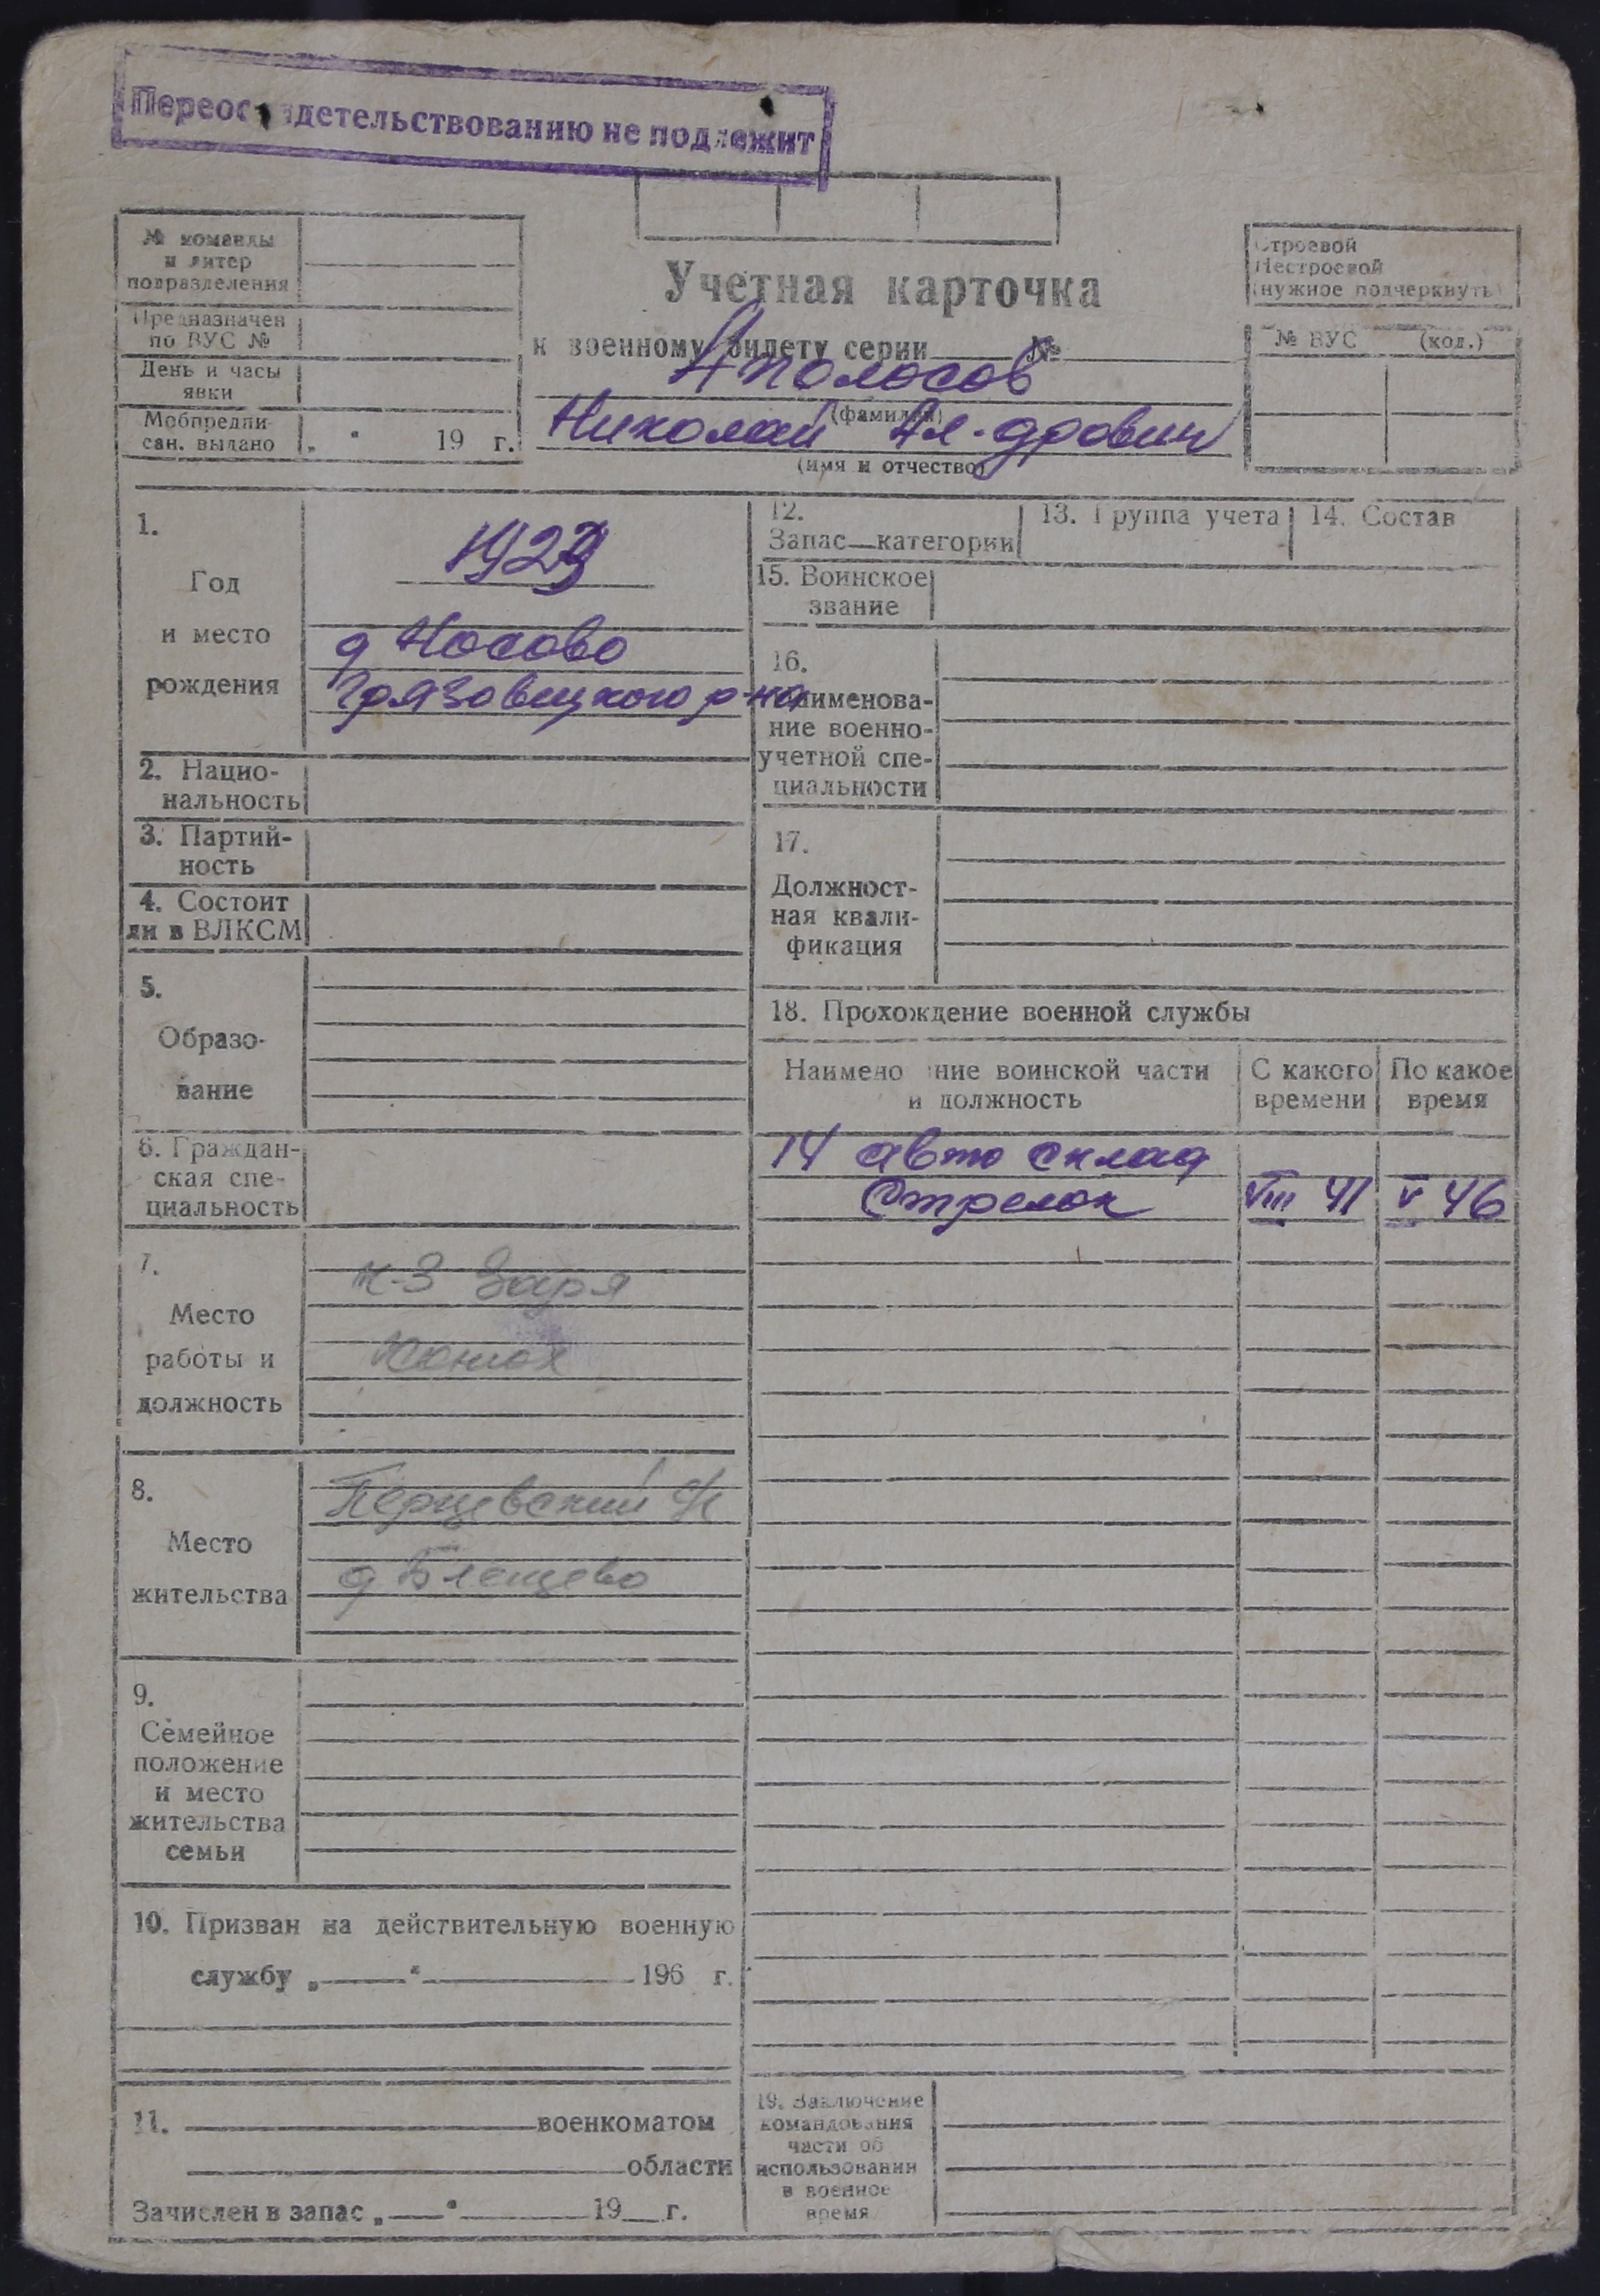 Переосвидетельствованию не подлежит
№ команды
и литер
подразделения
Предназначен
по ВУС №
День и часы
явки
Мобпредпи-
сан. выдано „ “ 19 г.
Учетная карточка
к военному билету серии №
Аполосов
(фамилия)
Николай Ал-дрович
(имя и отчество)
Строевой
Нестроевой
(нужное подчеркнуть)
№ ВУС (код.)
1.
Год
и место
рождения
1923
д Носово
Грязовецкого р-на
2. Нацио-
нальность
3. Партий-
ность
4. Состоит
ли в ВЛКСМ
5.
Образо-
вание
6. Граждан-
ская спе-
циальность
7.
Место
работы и
должность
к-з Заря
Конюх
8.
Место
жительства
Перцевский с/с
д Блещево
9.
Семейное
положение
и место
жительства
семьи
10. Призван на действительную военную
службу „ “ 196 г.
11. военкоматом
области
Зачислен в запас „ “ 19 г.
12.
Запас—категории
13. Группа учета
14. Состав
15. Воинское
звание
16.
Наименова-
ние военно-
учетной спе-
циальности
17.
Должност-
ная квали-
фикация
18. Прохождение военной службы
Наименование воинской части
и должность
С какого
времени
По какое
время
14 авто склад
Стрелок VIII 41 V 46
19. Заключение
командования
части об
использовании
в военное
время